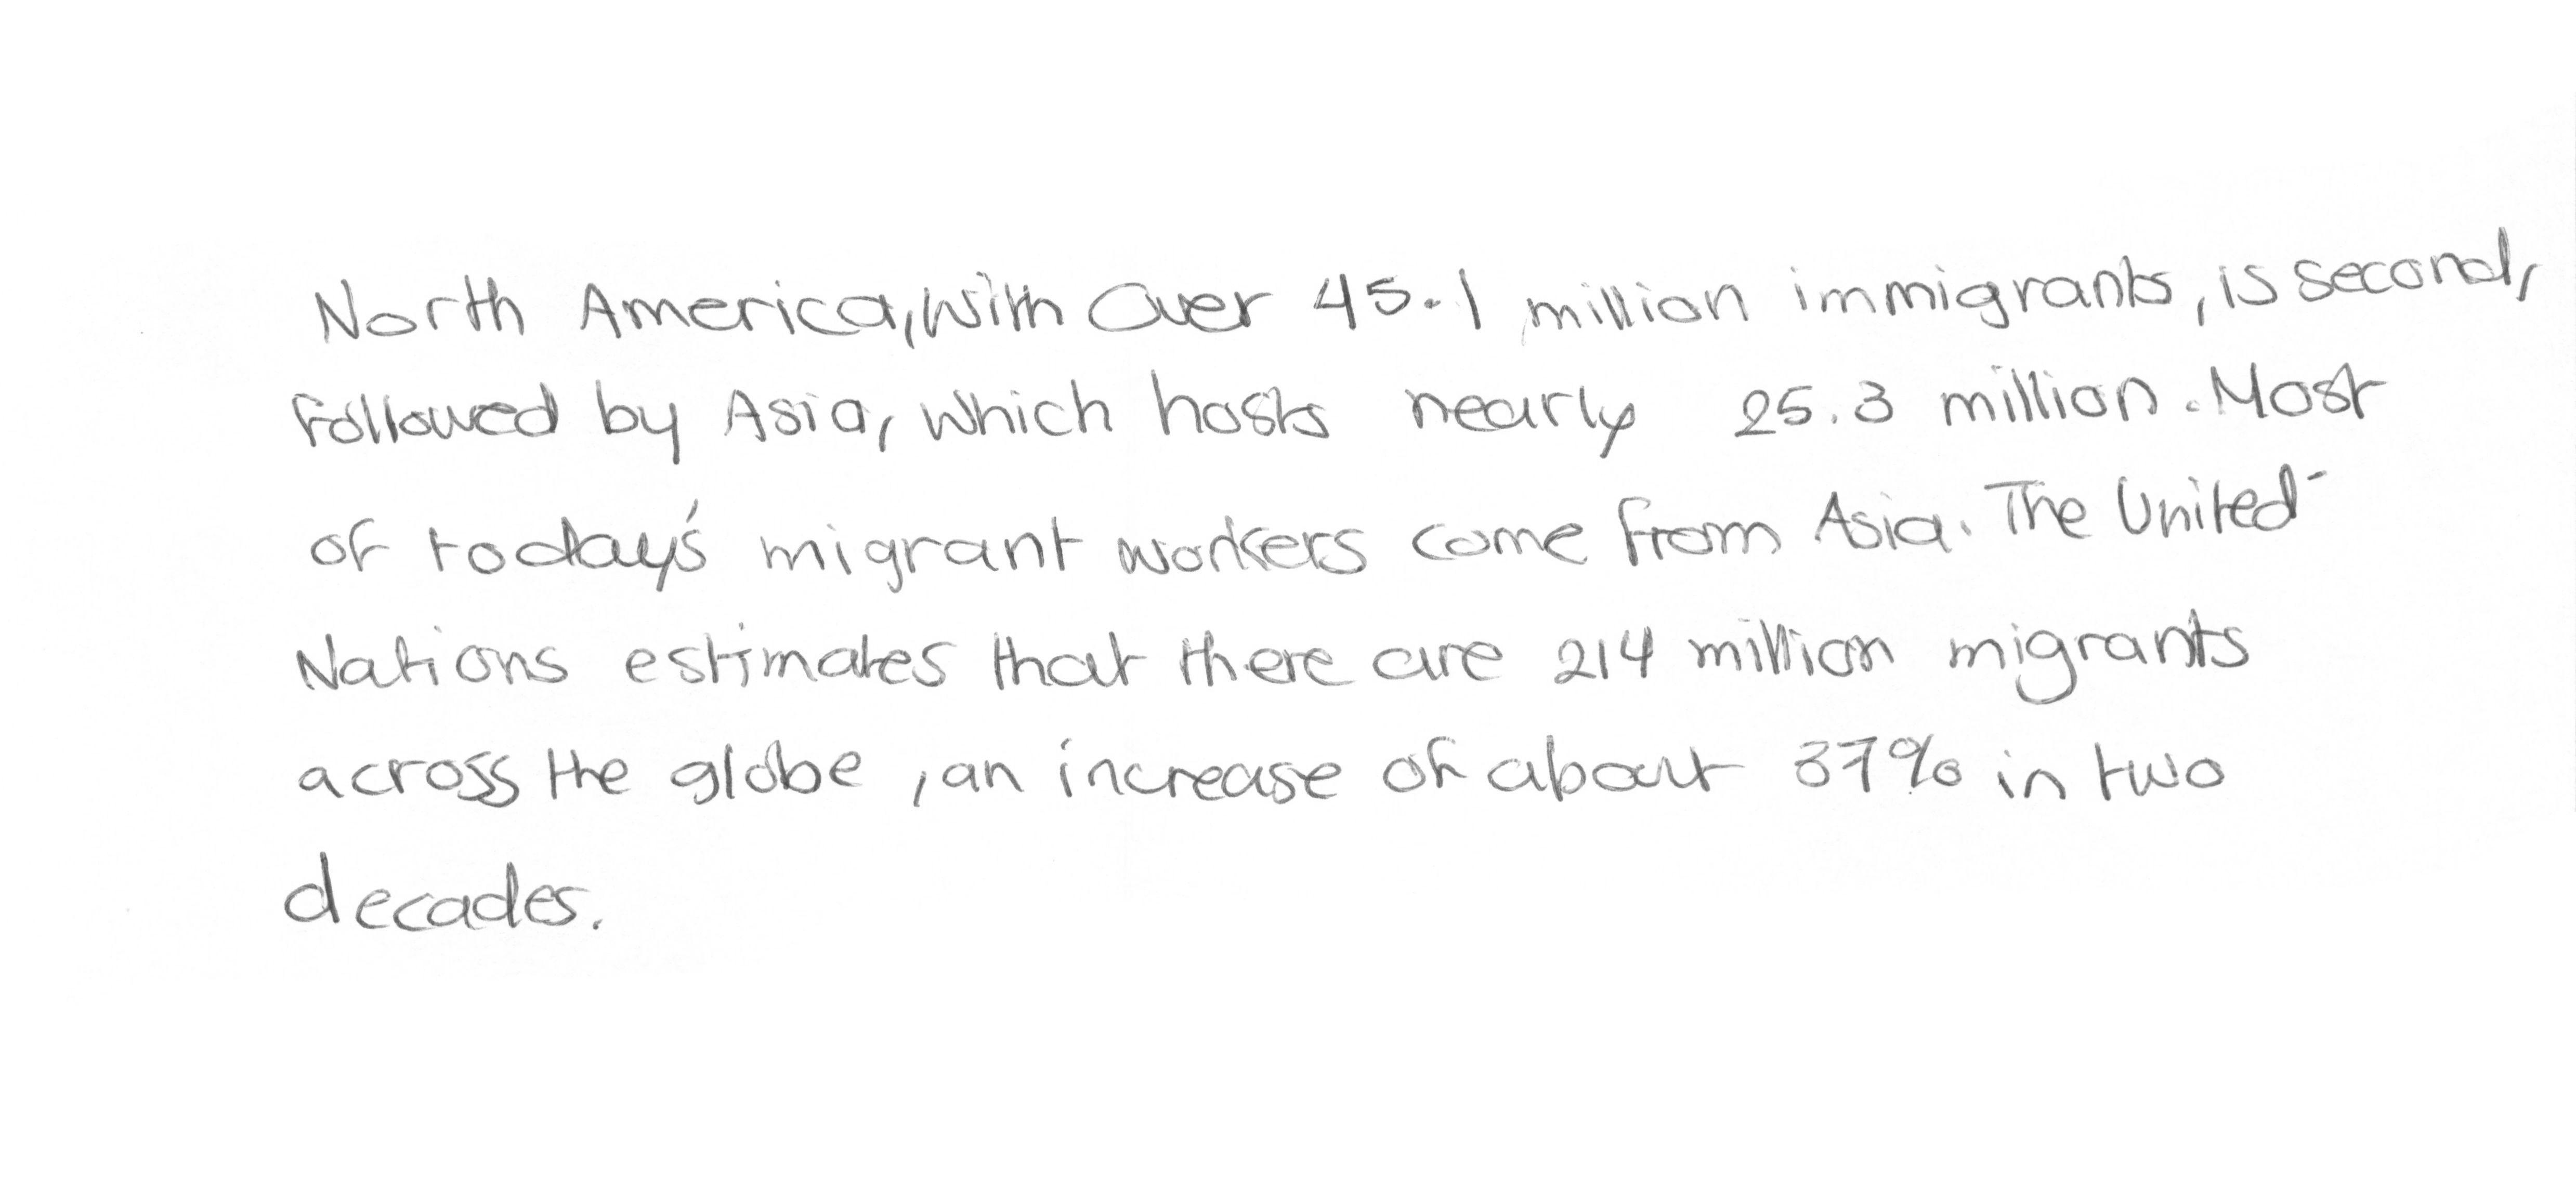 North America, with over 45.1 million immigrants, is second,
followed by Asia, which hosts nearly 25.3 million. Most
of today's migrant workers come from Asia. The United-
Nations estimates that there are 214 million migrants
across the globe, an increase of about 37% in two
decades.